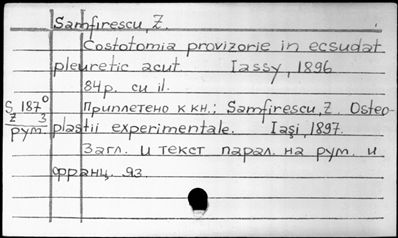 Samfirescu, Z.
Costotomia provizorie in ecsudat
pleuretic acut. Iassy, 1896
84p. cu il.
S 187⁰ Приплетено к кн.: Samfirescu, Z. Osteo-
z 3 plastii experimentale. Iaşi, 1897.
рум. Загл. и текст парал. на рум. и
франц. яз.